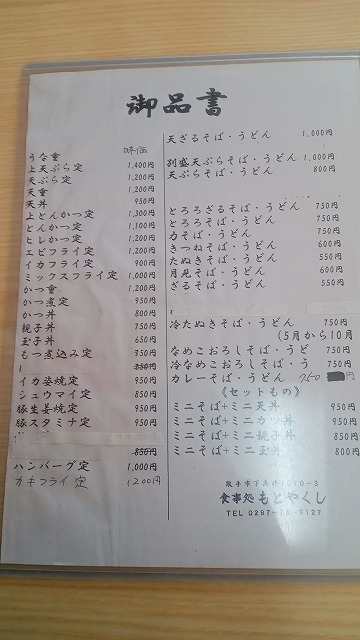 御品書
うな重 時価
上天ぷら定 1,400円
天ぷら定 1,200円
天重 1,200円
天丼 950円
上とんかつ定 1,300円
とんかつ定 1,100円
ヒレかつ定 1,200円
エビフライ定 1,200円
イカフライ定 900円
ミックスフライ定 1,000円
かつ重 1,200円
かつ煮定 950円
かつ丼 800円
親子丼 750円
玉子丼 650円
もつ煮込み定 750円
850円
イカ姿焼定 950円
シュウマイ定 850円
豚生姜焼定 950円
豚スタミナ定 950円
850円
ハンバーグ定 1,000円
カキフライ定 1200円
天ざるそば・うどん 1,000円
別盛天ぷらそば・うどん 1,000円
天ぷらそば・うどん 800円
とろろざるそば・うどん 750円
とろろそば・うどん 750円
力そば・うどん 750円
きつねそば・うどん 600円
たぬきそば・うどん 550円
月見そば・うどん 600円
ざるそば・うどん 550円
冷たぬきそば・うどん 750円
(5月から10月
なめこおろしそば・うど 750円
冷なめこおろしそば・う 750円
カレーそば・うどん 750 円
《セットもの》
ミニそば+ミニ天丼 950円
ミニそば+ミニカツ丼 950円
ミニそば+ミニ親子丼 850円
ミニそば+ミニ玉丼 800円
取手市下高井1070-3
食事処 もとやくし
TEL 0297-78-9127